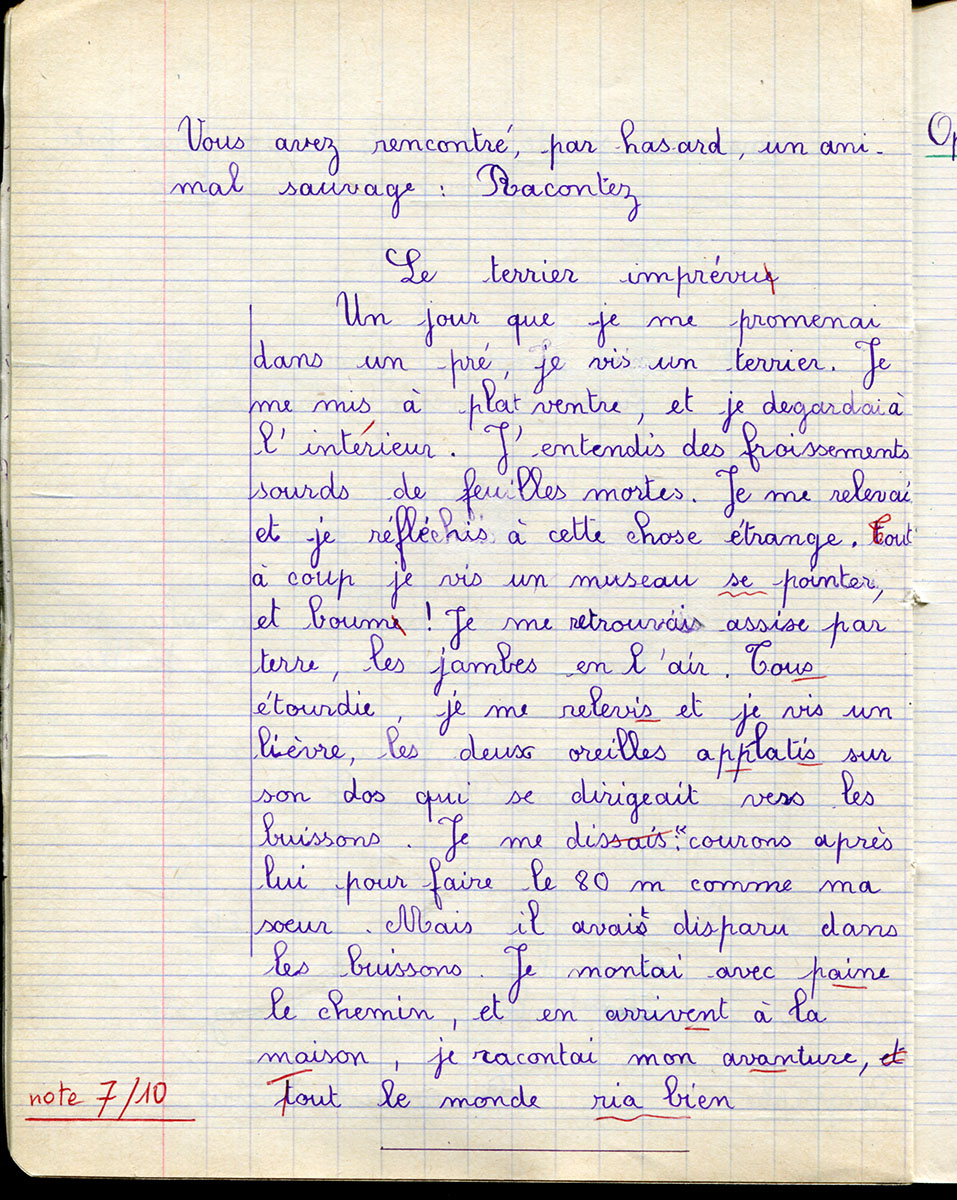 Vous avez rencontré, par hasard, un ani-
mal sauvage : Racontez
Op
Le terrier imprévu
Un jour que je me promenai
dans un pré, je vis un terrier. Je
me mis à plat ventre, et je degardai à
l'intérieur. J'entendis des froissements
sourds de feuilles mortes. Je me relevai
et je réfléchis à cette chose étrange. Tout
à coup je vis un museau se pointer,
et boum ! Je me retrouvais assise par
terre, les jambes en l'air. Tous
étourdie, je me relevis et je vis un
lièvre, les deux oreilles applatis sur
son dos qui se dirigeait vers les
buissons. Je me dissais : "courons après
lui pour faire le 80 m comme ma
soeur. Mais il avait disparu dans
les buissons. Je montai avec paine
le chemin, et en arrivent à la
maison, je racontai mon avanture, et
Tout le monde ria bien
note 7/10